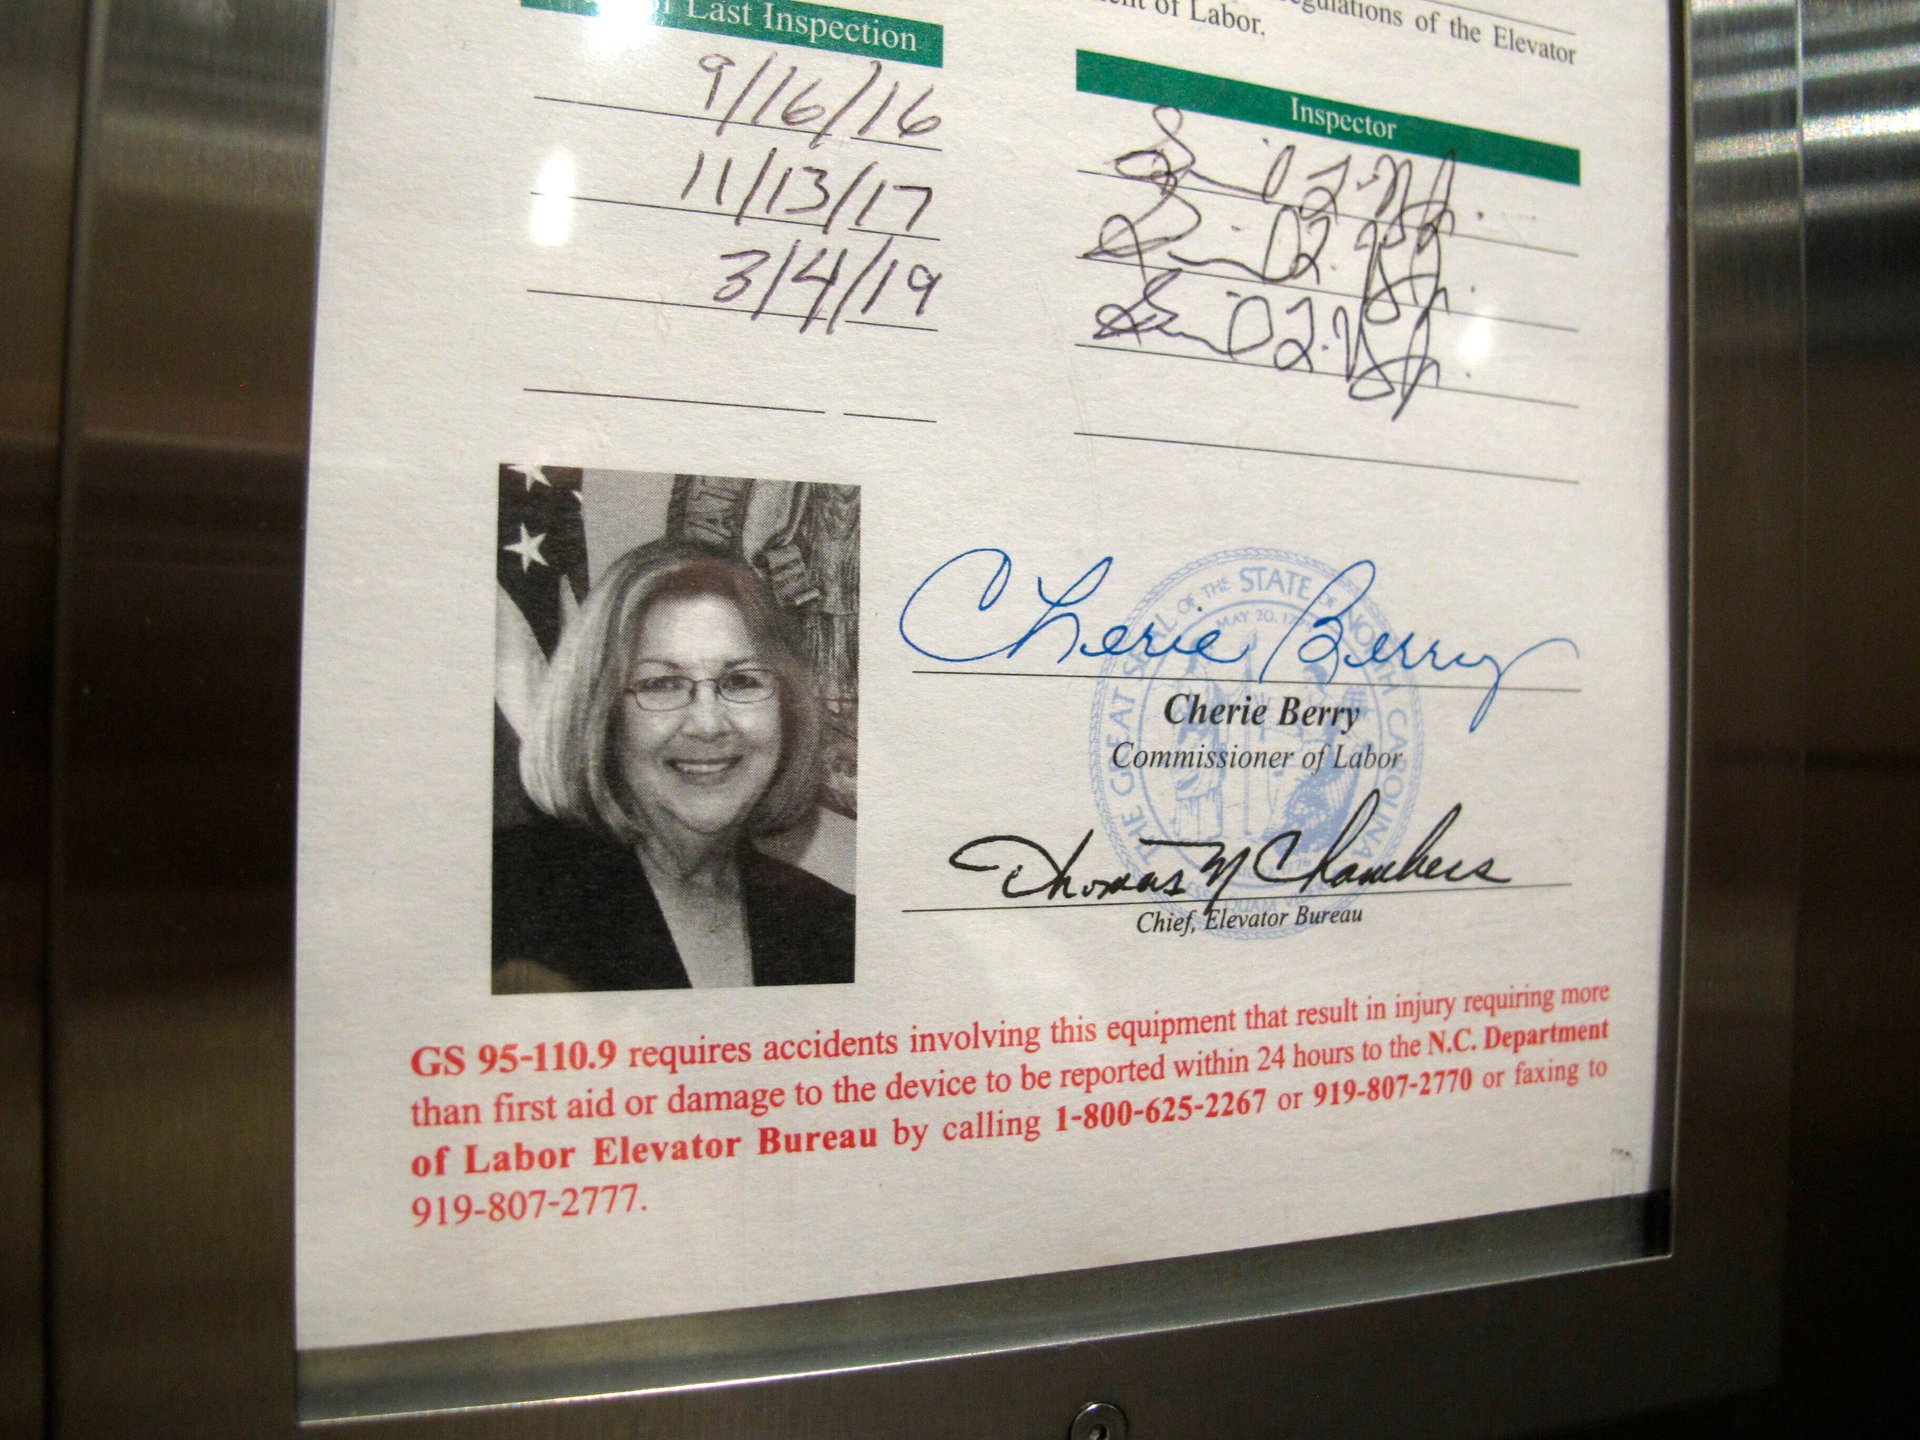 of Last Inspection
regulations of the Elevator
of Labor.
Inspector
9/16/16
11/13/17
3/4/19
Cherie Berry
Cherie Berry
Commissioner of Labor
THE GREAT SEAL OF THE STATE OF NORTH CAROLINA
MAY 20, 
Thomas M Chambers
Chief, Elevator Bureau
GS 95-110.9 requires accidents involving this equipment that result in injury requiring more
than first aid or damage to the device to be reported within 24 hours to the N.C. Department
of Labor Elevator Bureau by calling 1-800-625-2267 or 919-807-2770 or faxing to
919-807-2777.